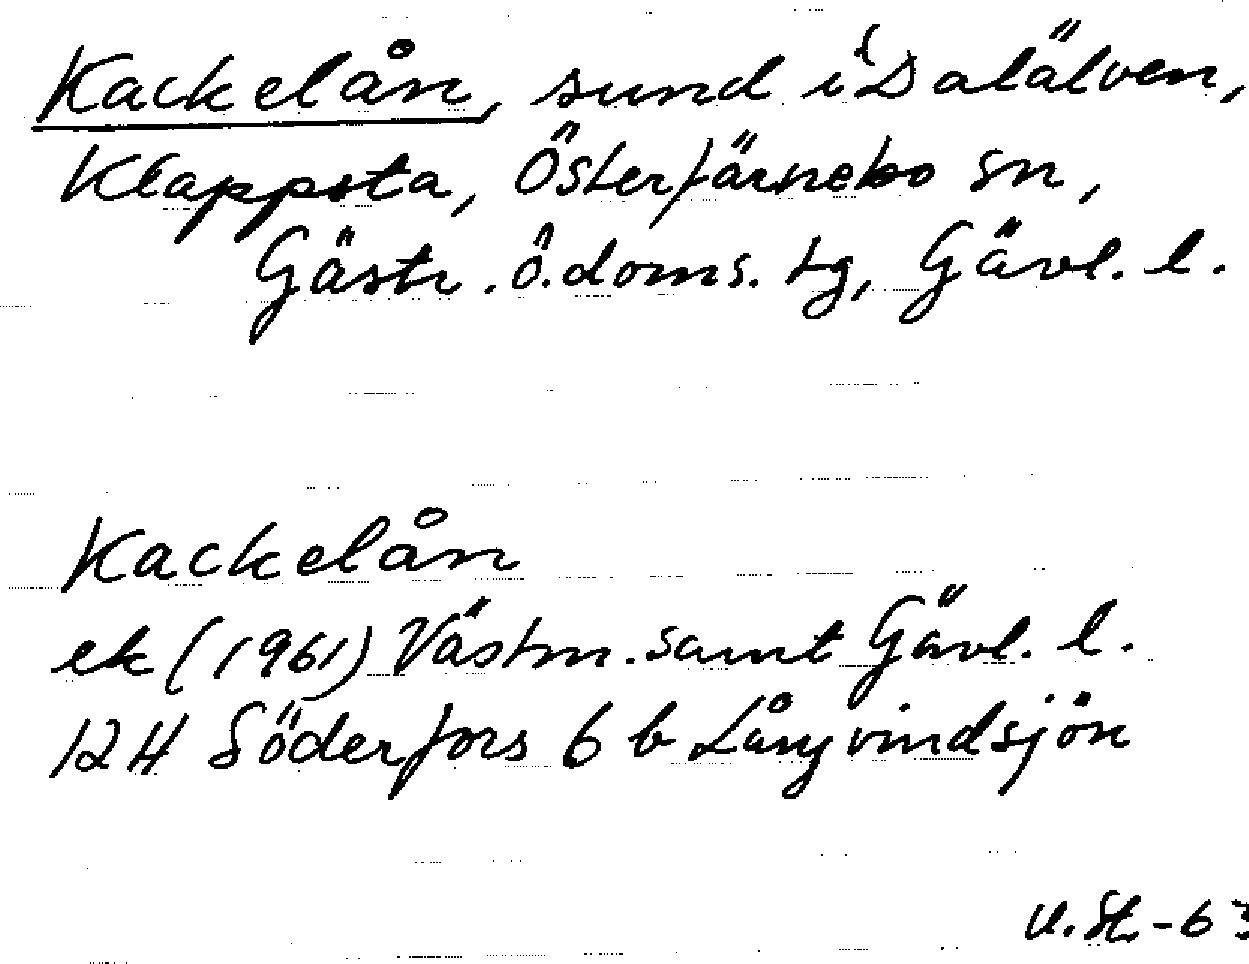 Kackelån, sund i Dalälven,
Klappsta, Österfärnebo sn,
Gästr. ö. doms. tg, Gävl. l.
Kackelån
ek (1961) Västm. samt Gävl. l.
12 H Söderfors 6 b Långvindsjön
U. St. - 63